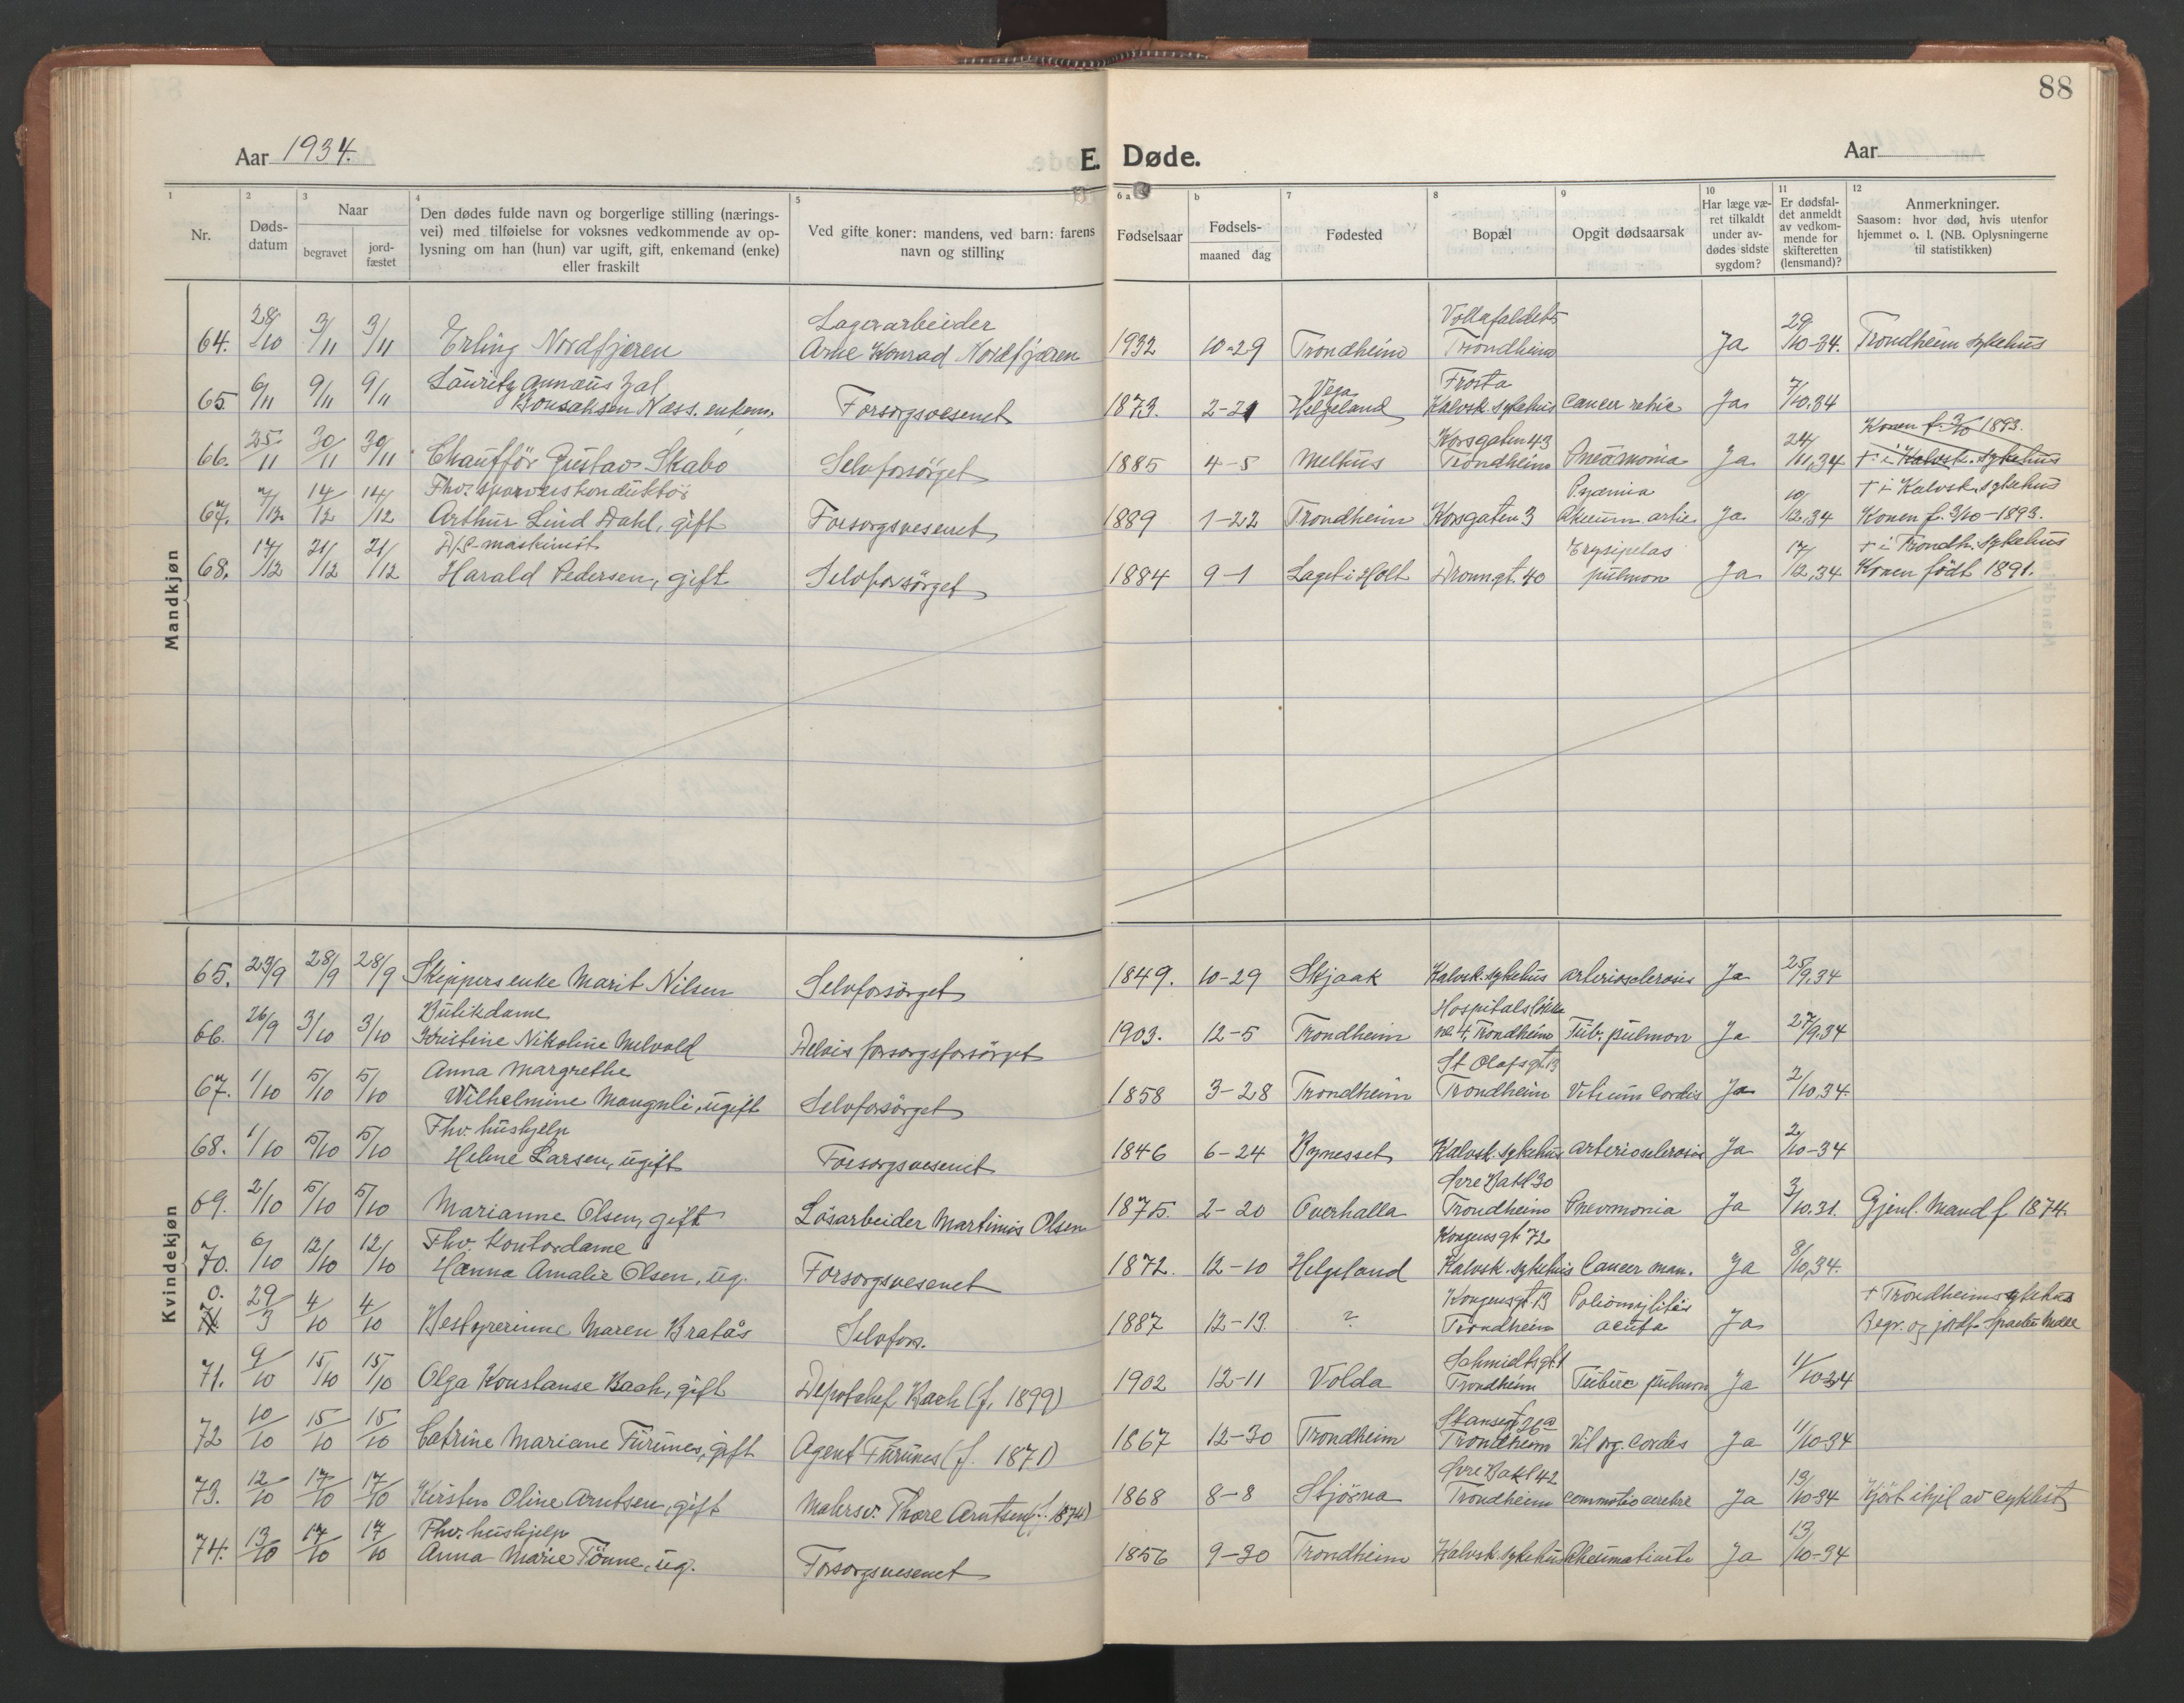 88
Aar 1934.
E. Døde.
Aar
1 2 3 4 5 6 a b 7 8 9 10 11 12
Nr.
Døds-
datum
Naar
begravet
jord-
fæstet
Den dødes fulde navn og borgerlige stilling (nærings-
vei) med tilføielse for voksnes vedkommende av op-
lysning om han (hun) var ugift, gift, enkemand (enke)
eller fraskilt
Ved gifte koner: mandens, ved barn: farens
navn og stilling
Fødselsaar
Fødsels-
maaned dag
Fødested
Bopæl
Opgit dødsaarsak
Har læge væ-
ret tilkaldt
under av-
dødes sidste
sygdom?
Er dødsfal-
det anmeldt
av vedkom-
mende for
skifteretten
(lensmand)?
Anmerkninger.
Saasom: hvor død, hvis utenfor
hjemmet o. l. (NB. Oplysningerne
til statistikken)
Mandkjøn
Lagerarbeider
64. 28/10 3/11 3/11 Erling Nordfjæren Arne Konrad Nordfjæren 1932 10-29 Trondheim Trondheim Ja 29/10-34. Trondheim sykehus
Lauritz Vega Frosta
65. 6/11 9/11 9/11 Næss. enkem. Forsorgsvesenet 1873. 2-21 Helgeland Kalvsk. sykehus Cancer Ja 7/10.34
Korsgaten 43 Konen f. 3/10 1893.
66. 25/11 30/11 30/11 Chauffør Gustav Skabo Selvforsørget 1885 4-5 Melhus Trondheim Pneumonia Ja 24/11.34 † i Kalvsk. sykehus
Fhv. sporveiskonduktør Pyæmia † i Kalvsk. sykehus
67. 7/12 14/12 14/12 Arthur Lind Dahl, gift Forsorgsvesenet 1889 1-22 Trondheim Korsgaten 3 Ja 10/12.34 Konen f. 3/10-1893.
D/S-maskinist Erysipelas † i Trondh. sykehus
68. 17/12 21/12 21/12 Harald Pedersen, gift Selvforsørget 1884 9-1 Laget i Holt Dronngt. 40 pulmon Ja 17/12.34 Konen født 1891.
Kvindekjøn
65. 23/9 28/9 28/9 Skippersenke Marit Nilsen Selvforsørget 1849. 10-29 Skjaak Kalvsk. sykehus arteriosclerosis Ja 25/9.34
Butikdame Hospitalsløkke
66. 26/9 3/10 3/10 Kristine Nikoline Melvold Delvis forsorgsforsørget 1903. 12-5 Trondheim no 4, Trondheim Tub. pulmon Ja 27/9.34
Anna Margrethe St Olafsgt. 13
67. 1/10 5/10 5/10 Wilhelmine Manguli, ugift Selvforsørget 1858 3-28 Trondheim Trondheim Vitium Cordis Ja 2/10.34.
Fhv. hushjelp
68. 1/10 5/10 5/10 Helene Larsen, ugift Forsorgsvesenet 1846 6-24 Bynesset Kalvsk. sykehus arteriosclerosis Ja 2/10-34
Øvre Bakl 30
69. 2/10 5/10 5/10 Marianne Olsen, gift Løsarbeider Martinius Olsen 1875. 2-20 Overhalla Trondheim Pneumonia Ja 3/10.31. Gjenl. Mand f 1874.
Fhv. Kontordame Kongensgt. 72
70. 6/10 12/10 12/10 Hanna Amalie Olsen, ug. Forsorgsvesenet 1872. 12-10 Helgeland Kalvsk. sykehus Cancer mam. Ja 8/10.34.
0. Kongensgt 13 Poliomyelitis † Trondheim sykehus
71 29/3 4/10 4/10 Bestyrerinne Maren Bratås Selvfors. 1887 12-13. ? Trondheim acuta Ja Begr. og jordf.
Schmidtsgt. 1
71. 9/10 15/10 15/10 Olga Konstanse Bach, gift Depotchef Bach (f. 1899) 1902 12-11 Volda Trondheim Tuberc pulmon Ja 11/10-34
72 10/10 15/10 15/10 Catrine Mariane Furunes, gift Agent Furunes (f. 1871) 1867 12-30 Trondheim Trondheim Vit org. Cordis Ja 11/10-34
Øvre Bakl 42
73. 12/10 17/10 17/10 Kirsten Oline Arntsen, gift Malersv. Thore Arntsen (f. 1874) 1868 8-8 Stjørna Trondheim commotio cerebri Ja 13/10-34 Kjørt ihjel av cyklist
Fhv. hushjelp
74. 13/10 17/10 17/10 Anna Marie Tønne, ug. Forsorgsvesenet 1856 9-30 Trondheim Kalvsk. sykehus Ja 13/10-34